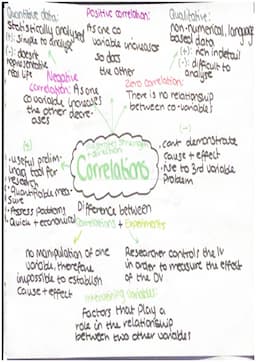 Quantitative data:
statistically analysed
(+): simple to analyse
(-): doesn't
representative
real life
Positive correlation:
As one co
variable increases
so does
the other
Qualitative:
non-numerical, language
based data
(+): rich in detail
(-): difficult to
analyse
Negative
correlation: As one
co variable increases
the other decre-
ases
Zero correlation:
There is no relationship
between co-variables
illustrates strength
+ direction
Correlations
(+)
• useful prelim-
inary tool for
research
• quantifiable mea-
sure
• Assess patterns
• Quick + economical
(-)
• cant demonstrate
cause + effect
• rise to 3rd variable
problem
Difference between
Correlations + Experiments
no manipulation of one
variable, therefore
impossible to establish
cause + effect
Researcher controls the IV
in order to measure the effect
of the DV
Intervening variables:
Factors that play a
role in the relationship
between two other variables